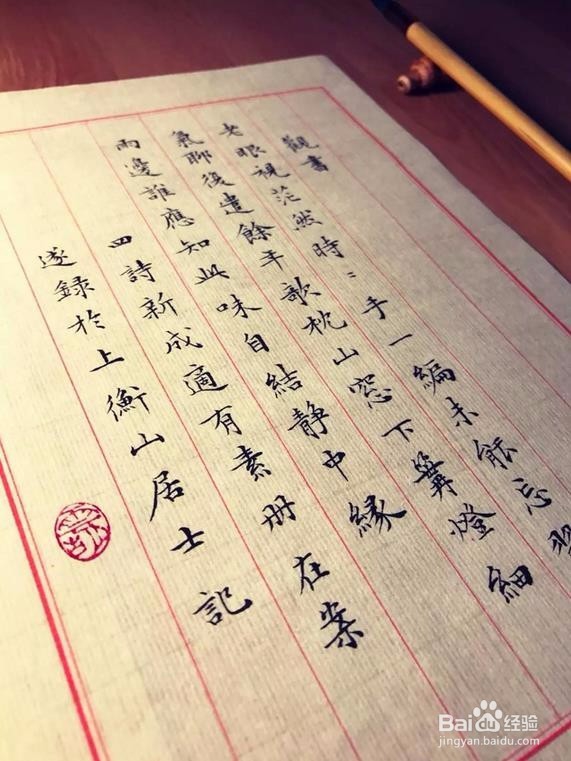 觀書
老眼視茫然時〻手一編未能忘習
氣聊復遣餘年欹枕山窓下篝燈細
雨邊誰應知此味自結靜中緣
四詩新成適有素册在案
遂錄於上衡山居士記
Baidu经验
jingyan.baidu.com